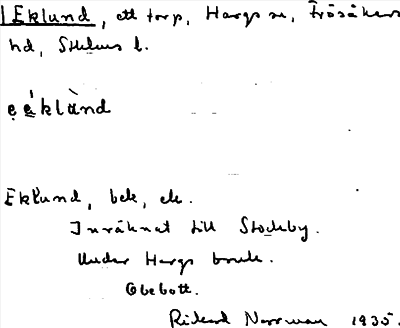 Eklund, ett torp, Hargs sn, Frösåkers
hd, Sthlms l.
ẹẹ́klὰnd
Eklund, bek, ek.
Inräknat till Stodeby.
Under Hargs bruk.
Obebott.
Rickard Norrman 1935.